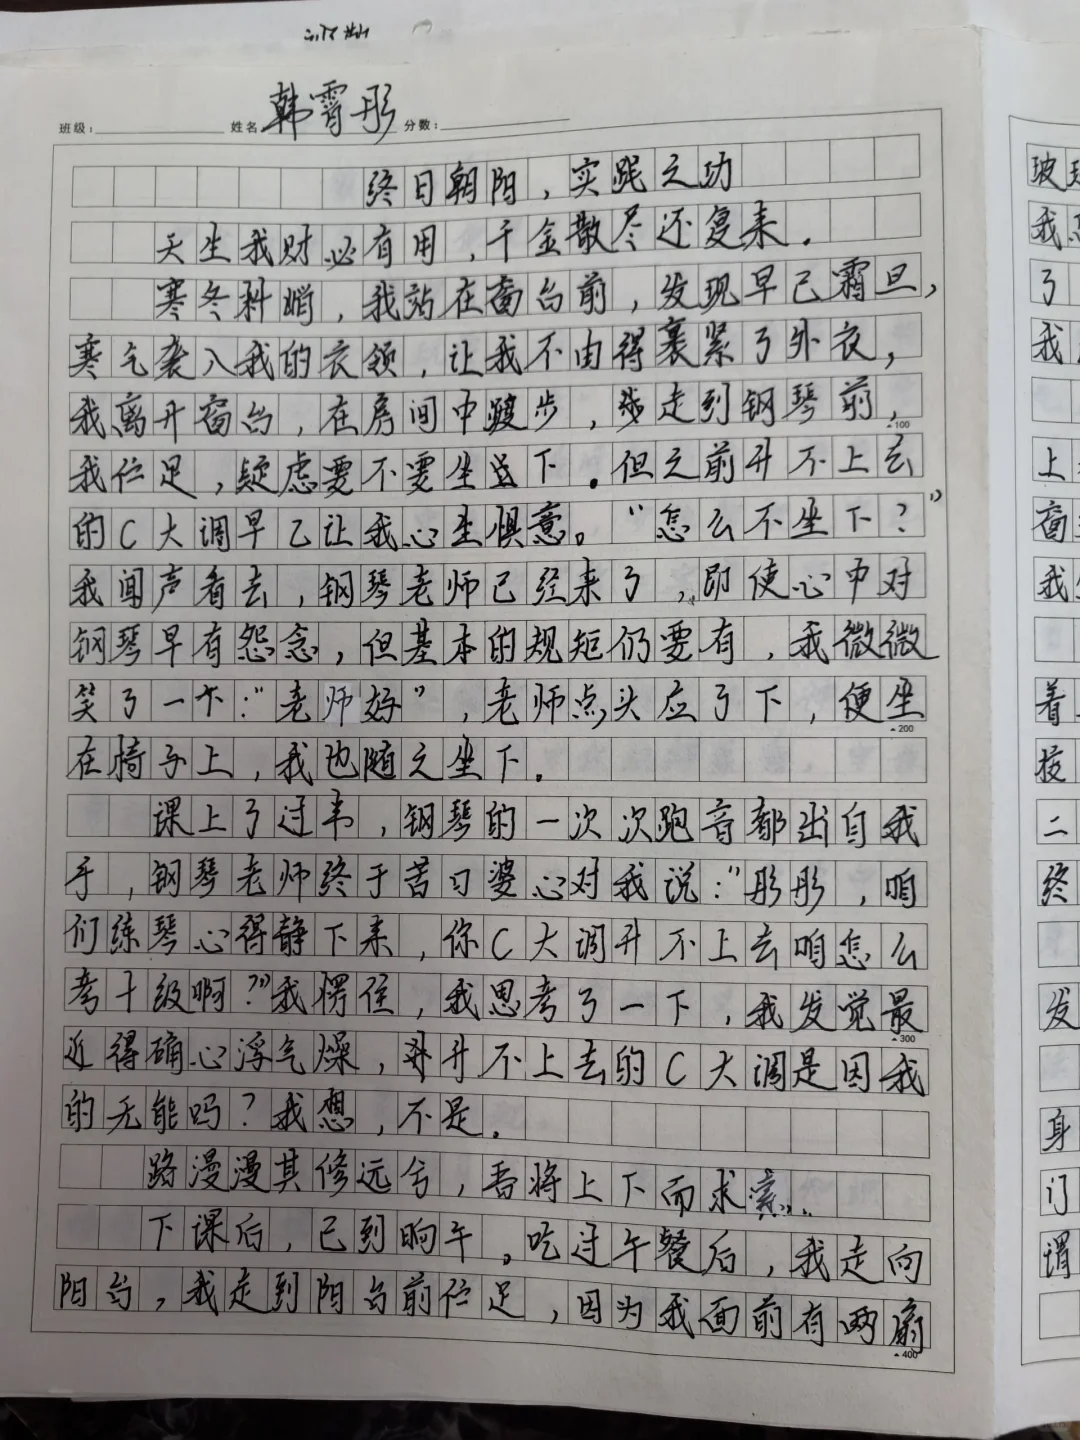 班级： 姓名 韩霄彤 分数：
终日朝阳，实践之功
天生我财必有用，千金散尽还复来。
寒冬料峭，我站在窗台前，发现早已霜旦，
寒气袭入我的衣领，让我不由得裹紧了外衣，
我离开窗台，在房间中踱步，步走到钢琴前，
100
我伫足，疑虑要不要坐下。但之前升不上去
的C大调早已让我心生惧意。“怎么不坐下？”
我闻声看去，钢琴老师已经来了，即使心中对
钢琴早有怨念，但基本的规矩仍要有，我微微
笑了一下：“老师好”，老师点头应了下，便坐
200
在椅子上，我也随之坐下。
课上了过半，钢琴的一次次跑音都出自我
手，钢琴老师终于苦口婆心对我说：“彤彤，咱
们练琴心得静下来，你C大调升不上去咱怎么
考十级啊？”我愣住，我思考了一下，我发觉最
300
近得确心浮气燥，升不上去的C大调是因我
的无能吗？我想，不是。
路漫漫其修远兮，吾将上下而求索……
下课后，已到晌午。吃过午餐后，我走向
阳台，我走到阳台前伫足，因为我面前有两扇
400
玻
我
了
我
上
窗
我
着
技
二
终
发
身
门
谓